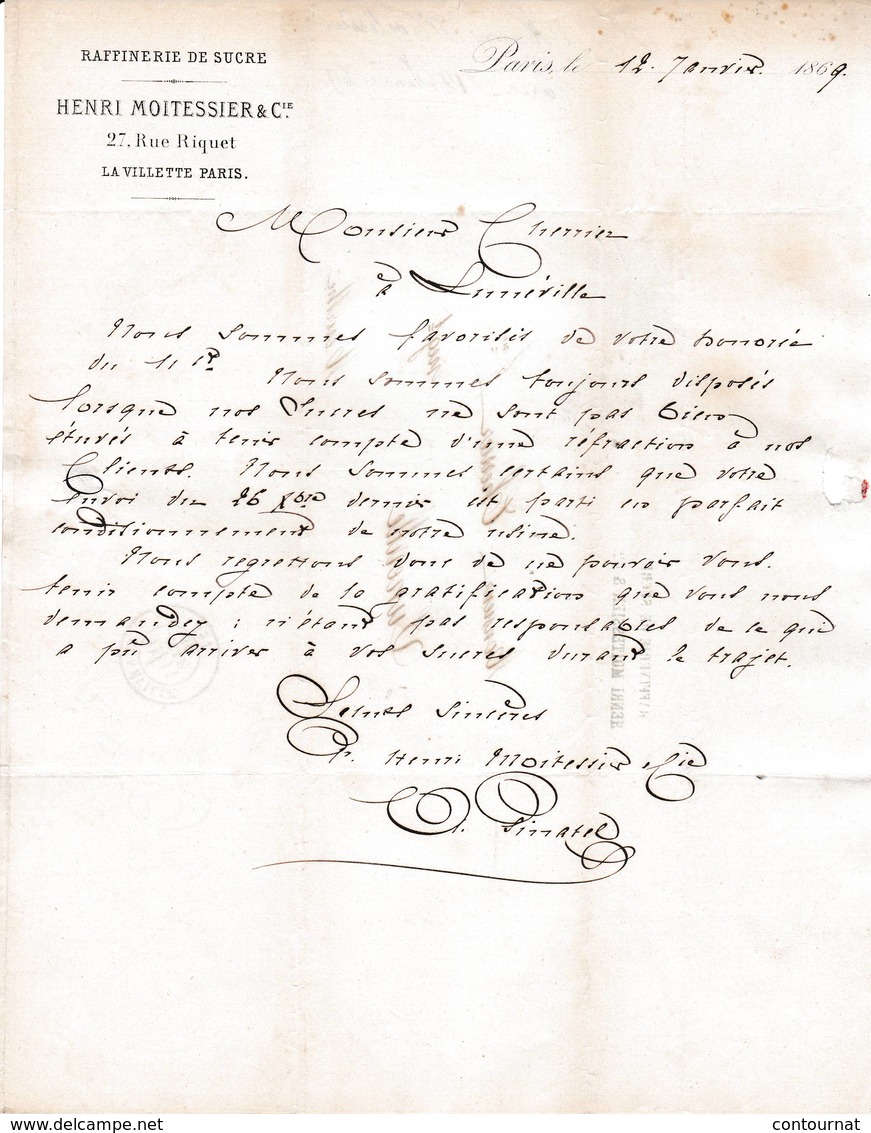 RAFFINERIE DE SUCRE
HENRI MOITESSIER & CIE.
27, Rue Riquet
LA VILLETTE PARIS.
Paris, le 12 Janvier 1869.
Monsieur Cherrier
à Lunéville
Nous sommes favorisés de votre honorée
du 11 ct.
Nous sommes toujours disposés
lorsque nos sucres ne sont pas bien
étuvés à tenir compte d'une réfraction à nos
Clients. Nous sommes certains que votre
Envoi du 26 Xbre dernier est parti en parfait
conditionnement de notre usine.
Nous regrettons donc de ne pouvoir vous
tenir compte de la gratification que vous nous
demandez ; n'étant pas responsables de ce qui
a pû arriver à vos sucres durant le trajet.
Saluts Sincères
Pr. Henri Moitessier & Cie
Pinatel
HENRI MOITESSIER &
delcampe.net
contournat